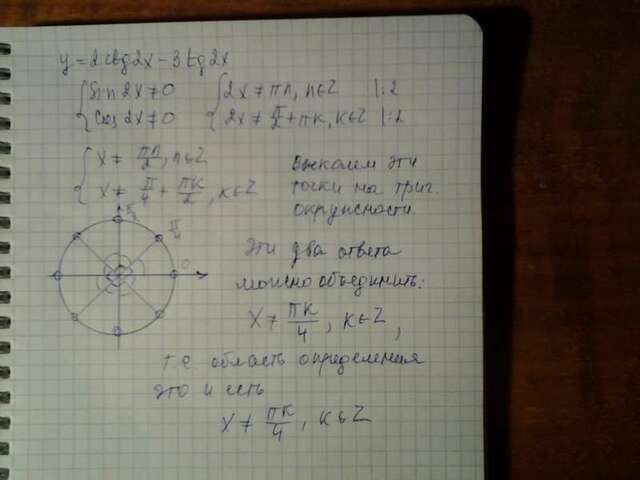 y = 2ctg2x - 3tg2x
{ sin 2x ≠ 0 { 2x ≠ πn, n∈Z |:2
{ cos 2x ≠ 0 { 2x ≠ π/2 + πк, к∈Z |:2
{ x ≠ πn/2, n∈Z
{ x ≠ π/4 + πк/2, к∈Z
выколем эти
точки на триг.
окружности
π/2
π/4
0
Эти два ответа
можно объединить:
x ≠ πк/4, к∈Z,
т.е область определения
это и есть
x ≠ πк/4, к∈Z